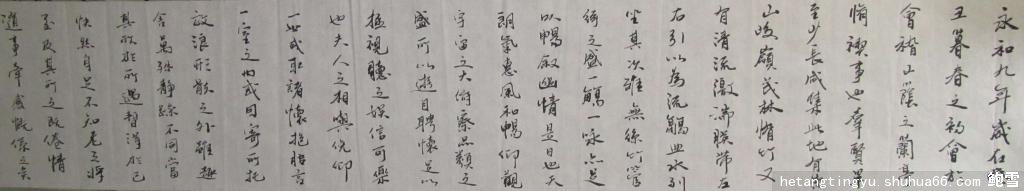 永和九年歲在
丑暮春之初會於
會稽山蔭之蘭亭
脩禊事也羣賢畢
至少長咸集此地有崇
山峻嶺茂林脩竹又
有清流激湍映帶左
右引以為流觴曲水列
坐其次雖無絲竹管
絃之盛一觴一詠亦足
以暢敘幽情是日也天
朗氣惠風和暢仰觀
宇宙之大俯察品類之
盛所以遊目騁懷足以
極視聽之娛信可樂
也夫人之相與俯仰
一世或取諸懷抱悟言
一室之內或因寄所托
放浪形骸之外雖趣
舍萬殊靜躁不同當
其欣於所遇暫得於己
快然自足不知老之將
至及其所之既倦情
隨事遷感慨係之矣
鲍雪
hetangtingyu.shuhua66.com